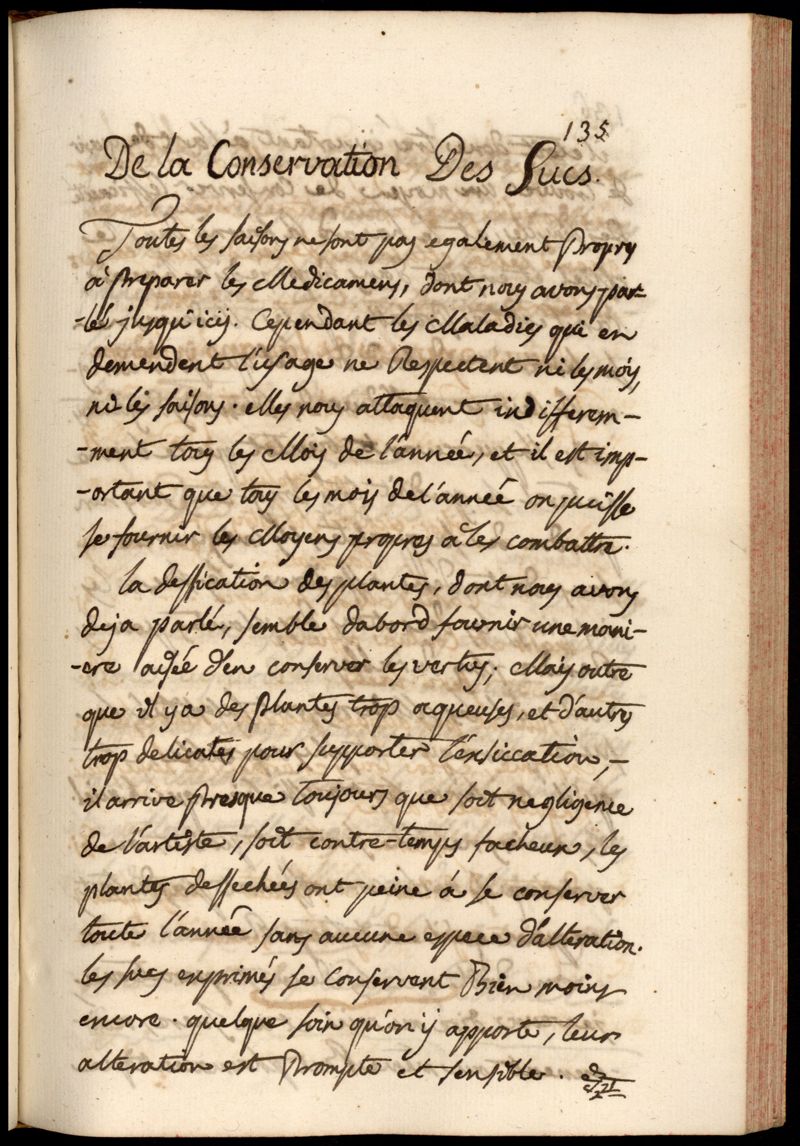 135
De la Conservation Des Sucs.
Toutes les saisons ne sont pas egalement Propres
à préparer les Medicamens, dont nous avons par-
-lé jusqu'icij. Cependant les Maladies qui en
demendent l'usage ne Respectent ni les mois,
ni les saisons. elles nous attaquent indifferem-
-ment tous les Mois de l'année, et il est imp-
-ortant que tous les mois de l'année on puisse
se fournir les Moyens propres à les combattre.
la dessication des plantes, dont nous avons
deja parlé, semble dabord fournir une mani-
-ere aisée d'en conserver les vertus; Mais outre
que il y a des Plantes trop aqueuses, et d'autres
trop delicates pour supporter l'exsiccation, -
il arrive Presque toujours que soit negligence
de l'artiste, soit contre-temps facheux, les
plantes dessechées ont peine á se conserver
toute l'année sans aucune espece d'alteration.
les sucs exprimés se conservent Bien moins
encore. quelque soin qu'on ij apporte, leur
alteration est Prompte et sensible.